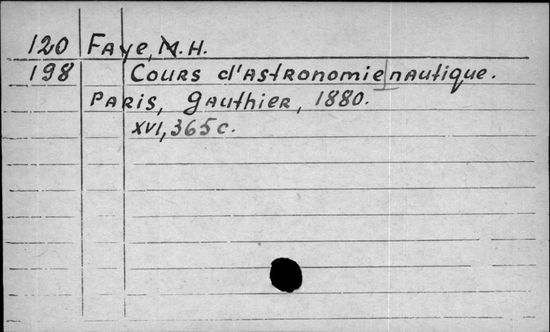 120 Faye, M. H.
198 Cours d'astronomie nautique.
Paris, Gauthier, 1880.
XVI, 365 c.